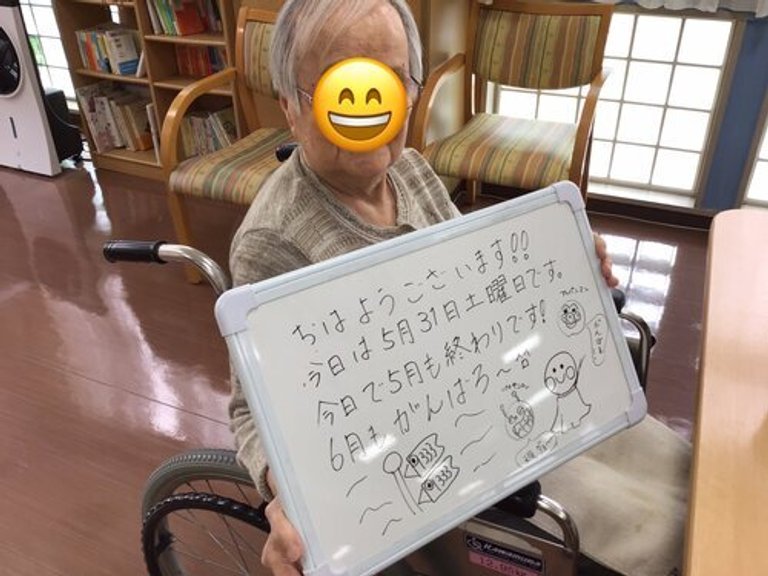 おはようございます!!
今日は5月31日土曜日です。
今日で5月も終わりです!
6月もがんばろ〜
アンパンマン
がんばるよ
Kawamura